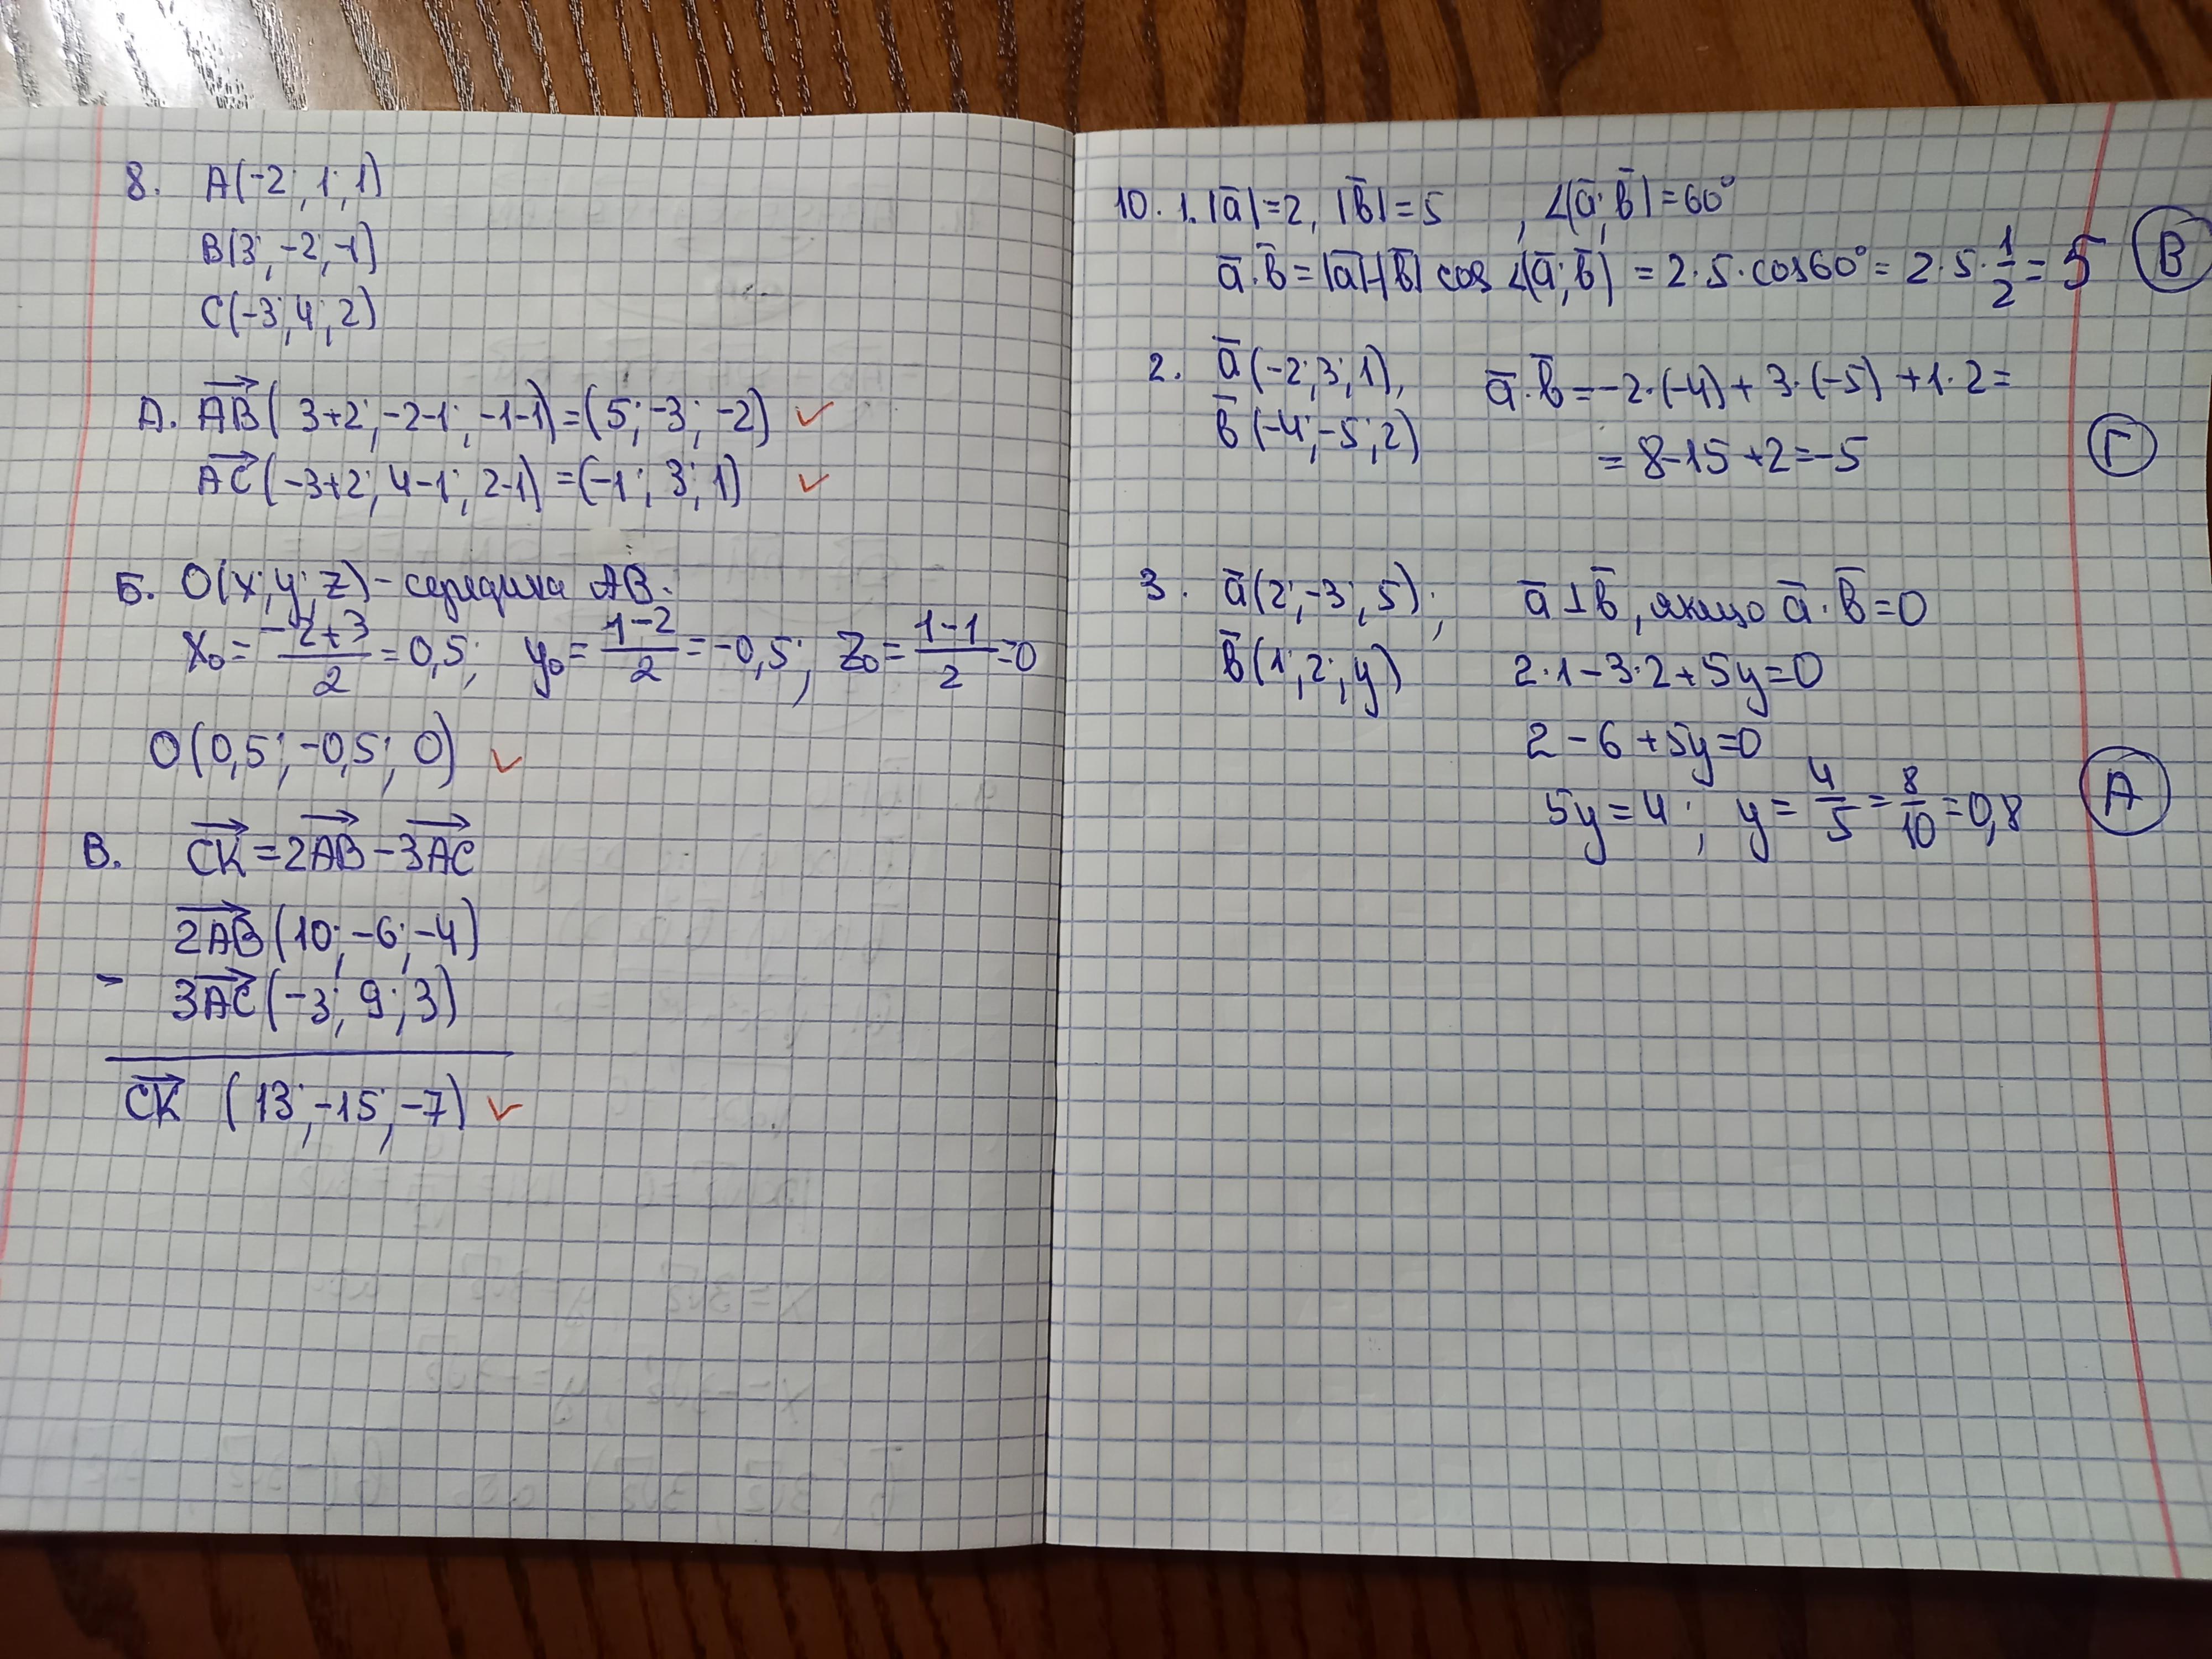 8. A(-2; 1; 1)
B(3; -2; -1)
C(-3; 4; 2)
А. AB( 3+2; -2-1; -1-1)=(5; -3; -2)
AC(-3+2; 4-1; 2-1)=(-1; 3; 1)
Б. O(x; y; z)-середина AB.
x₀= -2+3/2 =0,5; y₀= 1-2/2 =-0,5; z₀= 1-1/2 =0
O(0,5; -0,5; 0)
В. CK=2AB-3AC
2AB(10; -6; -4)
- 3AC(-3; 9; 3)
CK (13; -15; -7)
10. 1. |a|=2, |b|=5 , ∠(a; b)=60°
a·b=|a|·|b| cos ∠(a; b) =2·5·cos60°= 2·5·1/2= 5 В
2. a(-2; 3; 1), a·b=-2·(-4)+3·(-5)+1·2=
b(-4; -5; 2) =8-15+2=-5 Г
3. a(2; -3; 5); a⊥b, якщо a·b=0
b(1; 2; y) 2·1-3·2+5y=0
2-6+5y=0
5y=4; y= 4/5 = 8/10 =0,8 А